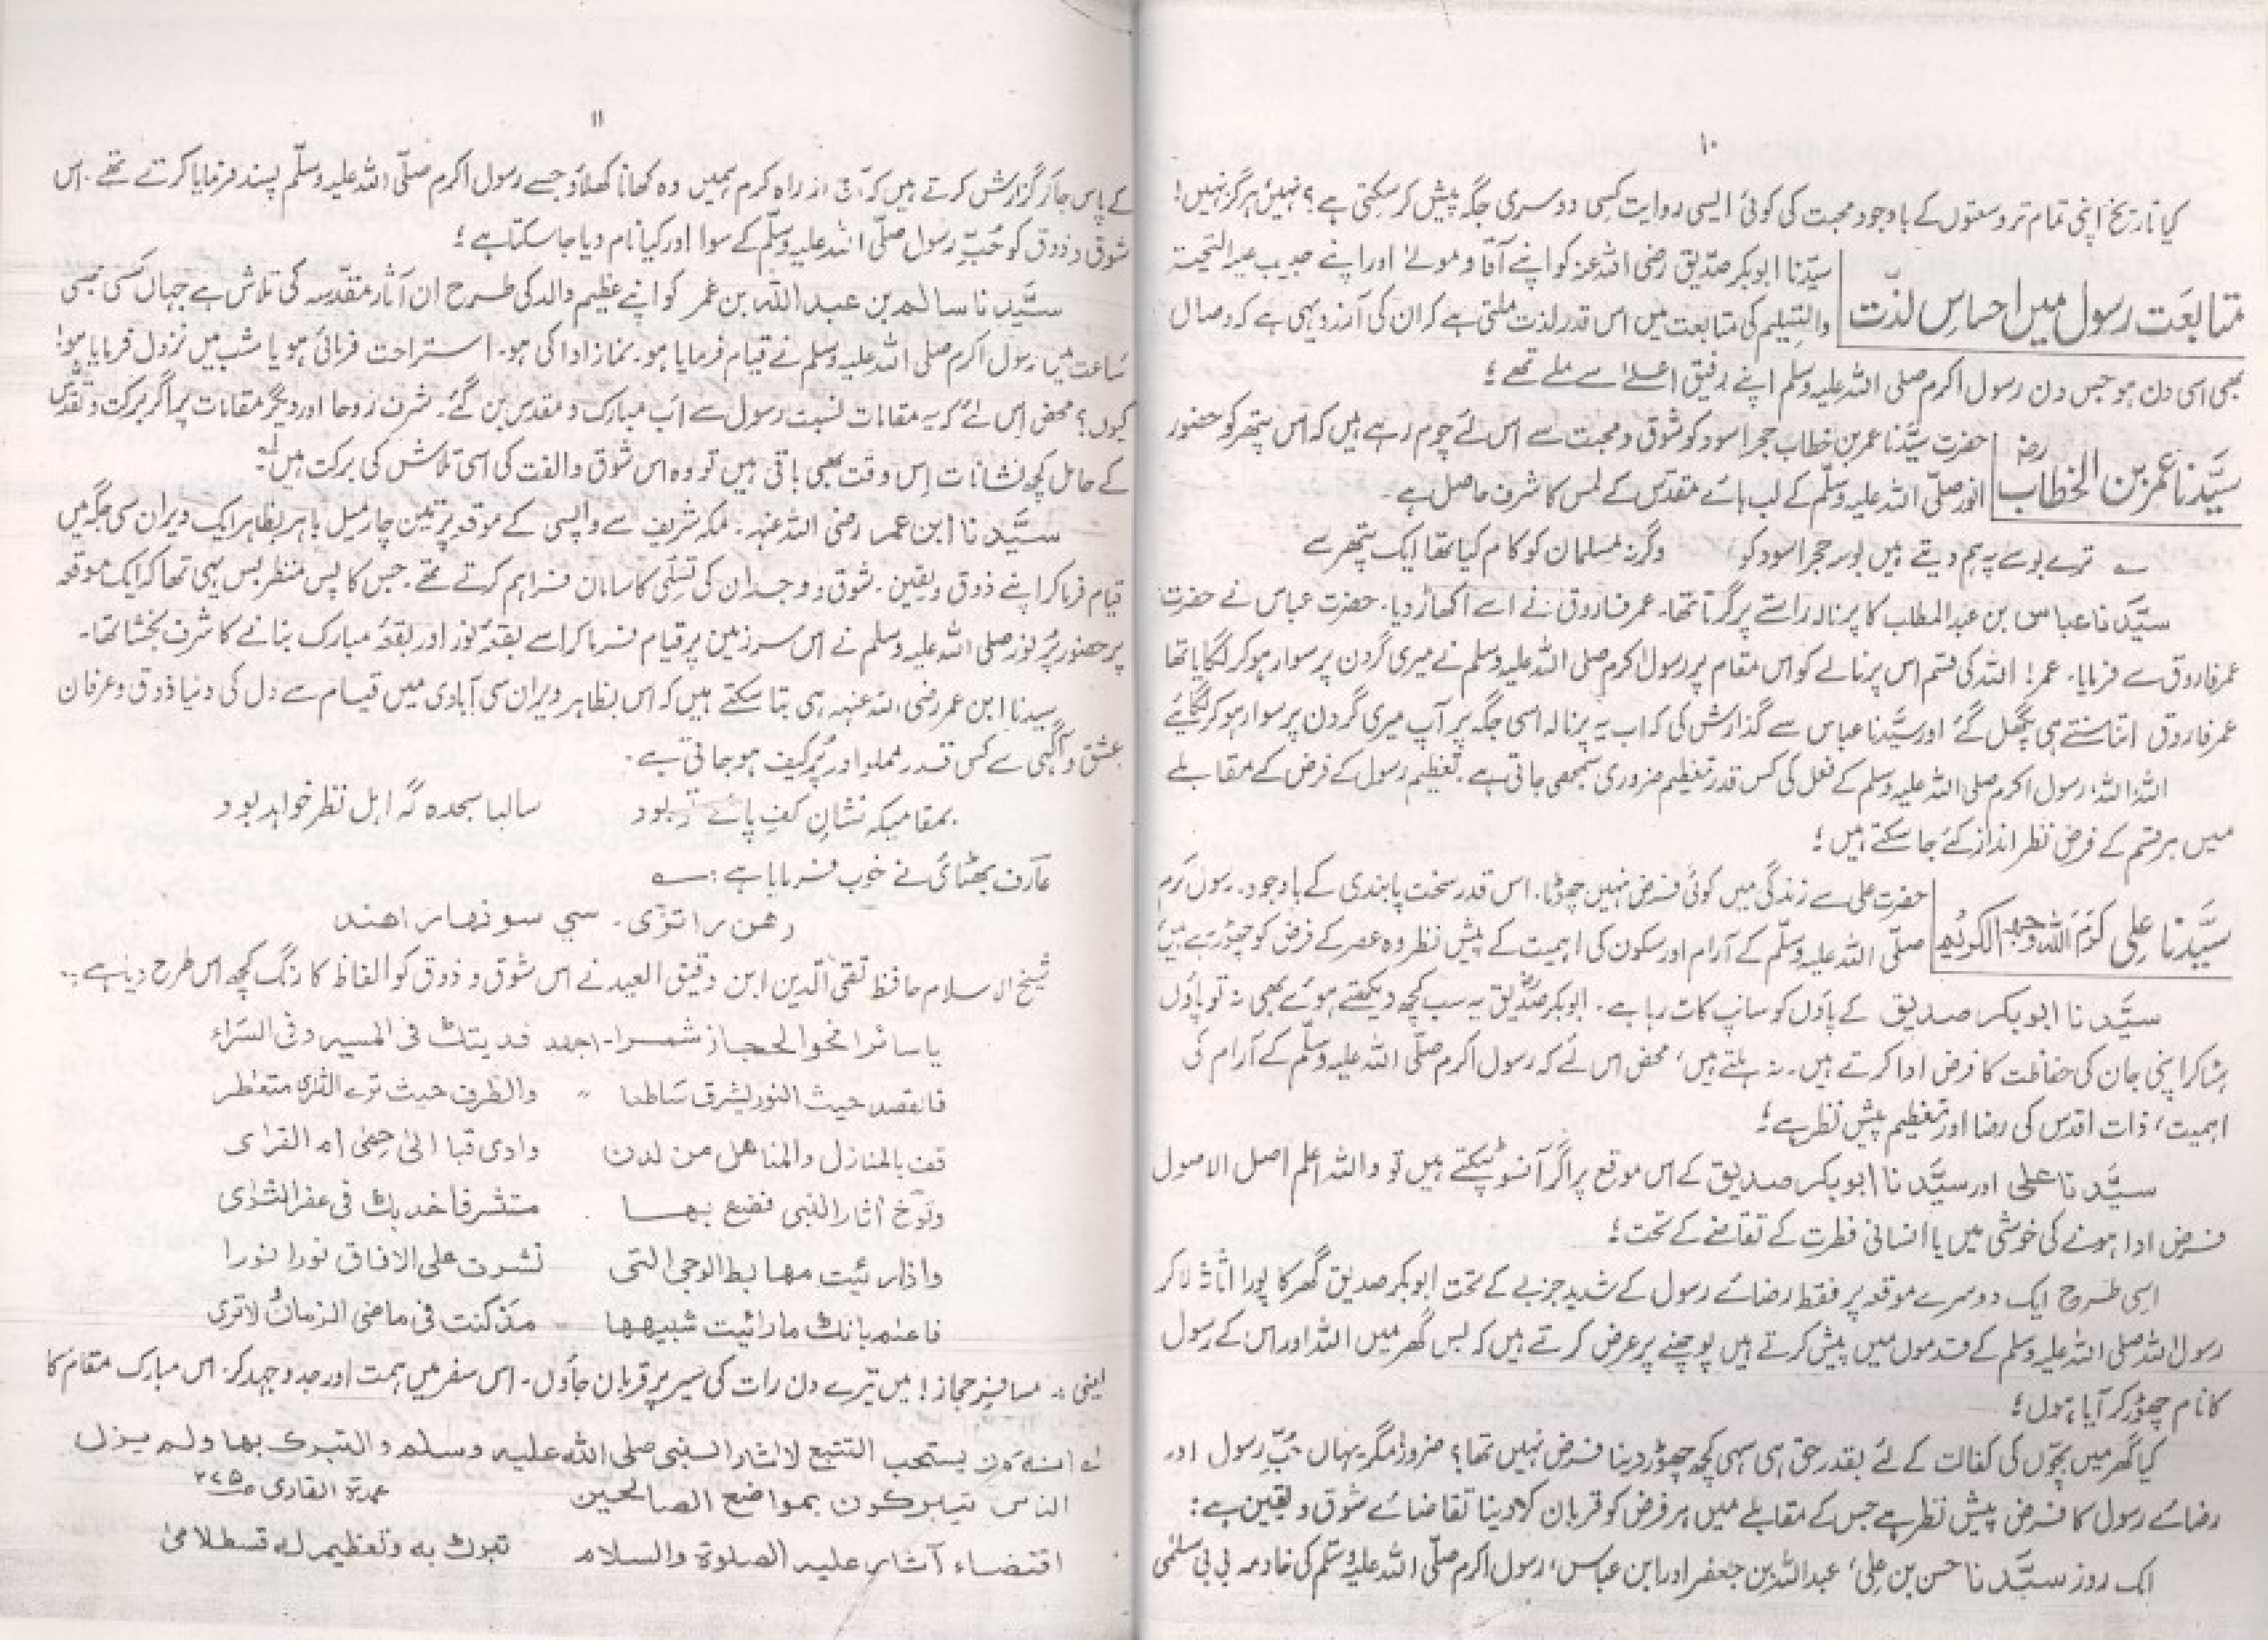 ۱۰
کیا تاریخ اپنی تمام تر وسعتوں کے باوجود محبت کی کوئی ایسی روایت کسی دوسری جگہ پیش کر سکتی ہے؟ نہیں ہرگز نہیں!
متابعَت رسول میں احساسِ لذّت
سیّدنا ابوبکر صدّیق رضی اللہ عنہ کو اپنے آقا و مولےٰ اور اپنے حبیب علیہ التحیۃ
والتسلیم کی متابعت میں اس قدر لذت ملتی ہے کہ ان کی آرزو یہی ہے کہ وصال
بھی اسی دن ہو جس دن رسول اکرم صلی اللہ علیہ وسلم اپنے رفیق اعلےٰ سے ملے تھے؛
سیَّدنا عمر بن الخطاب رضؓ
حضرت سیَّدنا عمر بن خطاب حجرِ اسود کو شوق و محبت سے اس لئے چوم رہے ہیں کہ اس پتھر کو حضور
انور صلّی اللہ علیہ وسلّم کے لب ہائے مقدّس کے لمس کا شرف حاصل ہے۔
ترے بوسے پہ ہم دیتے ہیں بوسہ حجرِ اسود کو وگرنہ مسلمان کو کام کیا تھا ایک پتھر سے
سیَّدنا عباس بن عبدالمطلب کا پرنالہ راستے پر گرتا تھا۔ عمر فاروق نے اسے اکھاڑ دیا۔ حضرت عباس نے حضرت
عمر فاروق سے فرمایا۔ عمر! اللہ کی قسم اس پرنالے کو اس مقام پر رسول اکرم صلی اللہ علیہ وسلم نے میری گردن پر سوار ہو کر لگایا تھا
عمر فاروق اتنا سنتے ہی پگھل گئے اور سیَّدنا عباس سے گذارش کی کہ اب یہ پرنالہ اسی جگہ پر آپ میری گردن پر سوار ہو کر لگائیے
اللہ اللہ! رسول اکرم صلی اللہ علیہ وسلم کے فعل کی کس قدر تعظیم ضروری سمجھی جاتی ہے۔ تعظیم رسول کے فرض کے مقابلے
میں ہر قسم کے فرض نظر انداز کئے جا سکتے ہیں؛
سیَّدنا علی کرّم اللہ وجہہ الکریم
حضرت علی سے زندگی میں کوئی فرض نہیں چھوٹا۔ اس قدر سخت پابندی کے باوجود۔ رسول اکرم
صلّی اللہ علیہ وسلّم کے آرام اور سکون کی اہمیت کے پیش نظر وہ عصر کے فرض کو چھوڑتے ہیں
سیَّدنا ابوبکر صدیق کے پاؤں کو سانپ کاٹ رہا ہے۔ ابوبکر صدّیق یہ سب کچھ دیکھتے ہوئے بھی نہ تو پاؤں
ہٹا کر اپنی جان کی حفاظت کا فرض ادا کرتے ہیں۔ نہ ہلتے ہیں، محض اس لئے کہ رسول اکرم صلّی اللہ علیہ وسلّم کے آرام کی
اہمیت، ذات اقدس کی رضا اور تعظیم پیش نظر ہے؛
سیَّدنا علی اور سیَّدنا ابوبکر صدیق کے اس موقع پر اگر آنسو ٹپکتے ہیں تو واللہ اعلم اصل الاصول
فرض ادا ہونے کی خوشی میں یا انسانی فطرت کے تقاضے کے تحت؛
اسی طرح ایک دوسرے موقعہ پر فقط رضائے رسول کے شدید جزبے کے تحت ابوبکر صدیق گھر کا پورا اثاثہ لا کر
رسول اللہ صلی اللہ علیہ وسلم کے قدموں میں پیش کرتے ہیں پوچھنے پر عرض کرتے ہیں کہ بس گھر میں اللہ اور اس کے رسول
کا نام چھوڑ کر آیا ہوں؛
کیا گھر میں بچّوں کی کفالت کے لئے بقدر حق ہی سہی کچھ چھوڑ دینا فرض نہیں تھا؟ ضرور! مگر یہاں حُبِّ رسول اور
رضائے رسول کا فرض پیش نظر ہے جس کے مقابلے میں ہر فرض کو قربان کر دینا تقاضائے شوق و یقین ہے:
ایک روز سیَّدنا حسن بن علی، عبداللہ بن جعفر اور ابن عباس، رسول اکرم صلّی اللہ علیہ وسلّم کی خادمہ بی بی سلمٰی
۱۱
کے پاس جا کر گزارش کرتے ہیں کہ آج از راہ کرم ہمیں وہ کھانا کھلاؤ جسے رسول اکرم صلّی اللہ علیہ وسلّم پسند فرمایا کرتے تھے۔ اس
شوق و ذوق کو حُبِّ رسول صلّی اللہ علیہ وسلّم کے سوا اور کیا نام دیا جا سکتا ہے؛
سیَّدنا سالم بن عبداللہ بن عمر کو اپنے عظیم والد کی طرح ان آثار مقدّسہ کی تلاش ہے جہاں کسی بھی
ساعت میں رسول اکرم صلی اللہ علیہ وسلم نے قیام فرمایا ہو۔ نماز ادا کی ہو۔ استراحت فرمائی ہو یا شب میں نزول فرمایا ہو!
کیوں؟ محض اس لئے کہ یہ مقامات نسبت رسول سے اَب مبارک و مقدس بن گئے۔ شرف روحا اور دیگر مقامات پر اگر برکت و تقدّس
کے حامل کچھ نشانات اِس وقت بھی باقی ہیں تو وہ اس شوق و الفت کی اسی تلاش کی برکت ہیں۔
سیَّدنا ابن عمر رضی اللہ عنہہ۔ مکہ شریف سے واپسی کے موقعہ پر تین چار میل باہر بظاہر ایک ویران سی جگہ میں
قیام فرما کر اپنے ذوق و یقین۔ شوق و وجدان کی تسلّی کا سامان فراہم کرتے تھے۔ جس کا پس منظر بس یہی تھا کہ ایک موقعہ
پر حضور پُر نور صلی اللہ علیہ وسلم نے اس سرزمین پر قیام فرما کر اسے بقعۂ نور اور بقعۂ مبارک بنانے کا شرف بخشا تھا۔
سیدنا ابن عمر رضی اللہ عنہہ ہی بتا سکتے ہیں کہ اس بظاہر ویران سی آبادی میں قیام سے دل کی دنیا ذوق و عرفان
عشق و آگہی سے کس قدر مملو اور پُر کیف ہو جاتی ہے۔
بمقامیکہ نشانِ کفِ پائے تو بود سالہا سجدہ گہ اہل نظر خواہد بود
عارف بھٹائی نے خوب فرمایا ہے:۔
رهن راتوڙي۔ سي سونهار اهند
شیخ الاسلام حافظ تقی الدین ابن دقیق العید نے اس شوق و ذوق کو الفاظ کا رنگ کچھ اس طرح دیا ہے:۔
یا سائرا نحو الحجاز شمرا اجهد فدیتک فی المسیر وفی السّراء
فاقصد حیث النور یشرق ساطعا والطرف حیث ترے الثری متعطر
قف بالمنازل والمناهل من لدن وادی قبا الیٰ حِمیٰ ام القرای
وتوّخ آثار النبی فضع بهــا متشرفا خدیک فی عفر الثرای
واذا رئیت مهابط الوحی التی نشرت علی الافاق نورا نورا
فاعلم بانک ما رائیت شبیهها مذ کنت فی ماضی الزمان ولا تری
یعنی:۔ مسافرِ حجاز! میں تیرے دن رات کی سیر پر قربان جاؤں۔ اس سفر میں ہمت اور جد و جہد کر۔ اس مبارک مقام کا
یستحب التتبع لاٰثار النبی صلی اللہ علیہ وسلم والتبرک بها ولم یزل
الناس یتبرکون بمواضع الصالحین عمدۃ القاری ص۲۷۵
اقتضاء آثار علیہ الصلوٰۃ والسلام تبرک بہ وتعظیم لہ قسطلانی